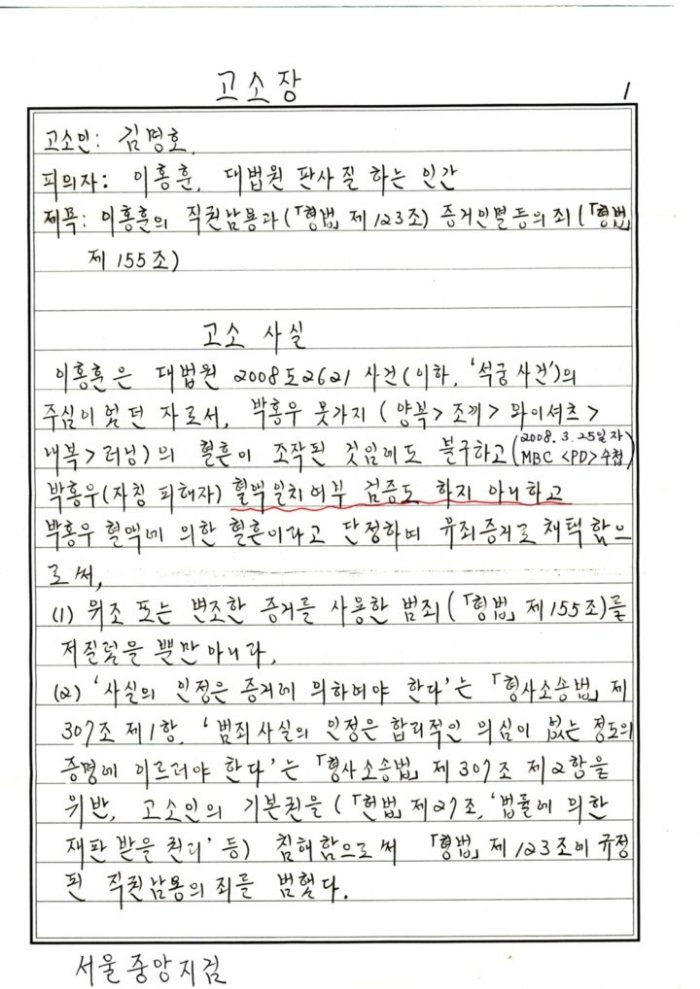 고소장
1
고소인: 김명호.
피의자: 이홍훈, 대법원 판사질 하는 인간
제목: 이홍훈의 직권남용과(「형법」 제123조) 증거인멸등의 죄(「형법」
제155조)
고소 사실
이홍훈은 대법원 2008도2621 사건(이하, '석궁사건')의
주심이었던 자로서, 박홍우 옷가지 (양복>조끼>와이셔츠>
내복>러닝)의 혈흔이 조작된 것임에도 불구하고(2008.3.25일자 MBC <PD>수첩)
박홍우(자칭 피해자) 혈액일치여부 검증도 하지 아니하고
박홍우 혈액에 의한 혈흔이라고 단정하며 유죄증거로 채택함으
로써,
(1) 위조 또는 변조한 증거를 사용한 범죄(「형법」 제155조)를
저질렀을 뿐만 아니라,
(2) '사실의 인정은 증거에 의하여야 한다'는 「형사소송법」 제
307조 제1항, '범죄사실의 인정은 합리적인 의심이 없는 정도의
증명에 이르러야 한다'는 「형사소송법」 제307조 제2항을
위반, 고소인의 기본권을 (「헌법」 제27조, '법률에 의한
재판 받을 권리' 등) 침해함으로써 「형법」 제123조에 규정
된 직권남용의 죄를 범했다.
서울중앙지검